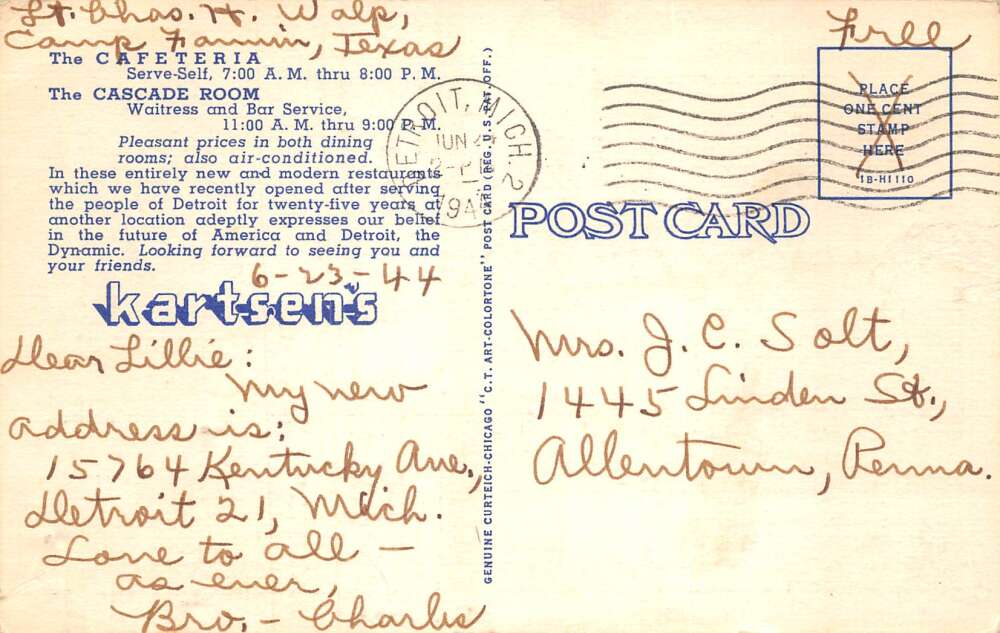 Lt. Chas. H. Walp,
Camp Fannin, Texas
The CAFETERIA
Serve-Self, 7:00 A. M. thru 8:00 P. M.
The CASCADE ROOM
Waitress and Bar Service,
11:00 A. M. thru 9:00 P. M.
Pleasant prices in both dining
rooms; also air-conditioned.
In these entirely new and modern restaurants
which we have recently opened after serving
the people of Detroit for twenty-five years at
another location adeptly expresses our belief
in the future of America and Detroit, the
Dynamic. Looking forward to seeing you and
your friends.
6-23-44
kartsen's
Dear Lillie:
My new
address is:
15764 Kentucky Ave.,
Detroit 21, Mich.
Love to all —
as ever,
Bro. - Charles
GENUINE CURTEICH-CHICAGO "C.T. ART-COLORTONE" POST CARD (REG. U.S. PAT. OFF.)
DETROIT, MICH. 2
JUN
194
Free
PLACE
ONE CENT
STAMP
HERE
1B-H1110
POST CARD
Mrs. J. C. Solt,
1445 Linden St.,
Allentown, Penna.